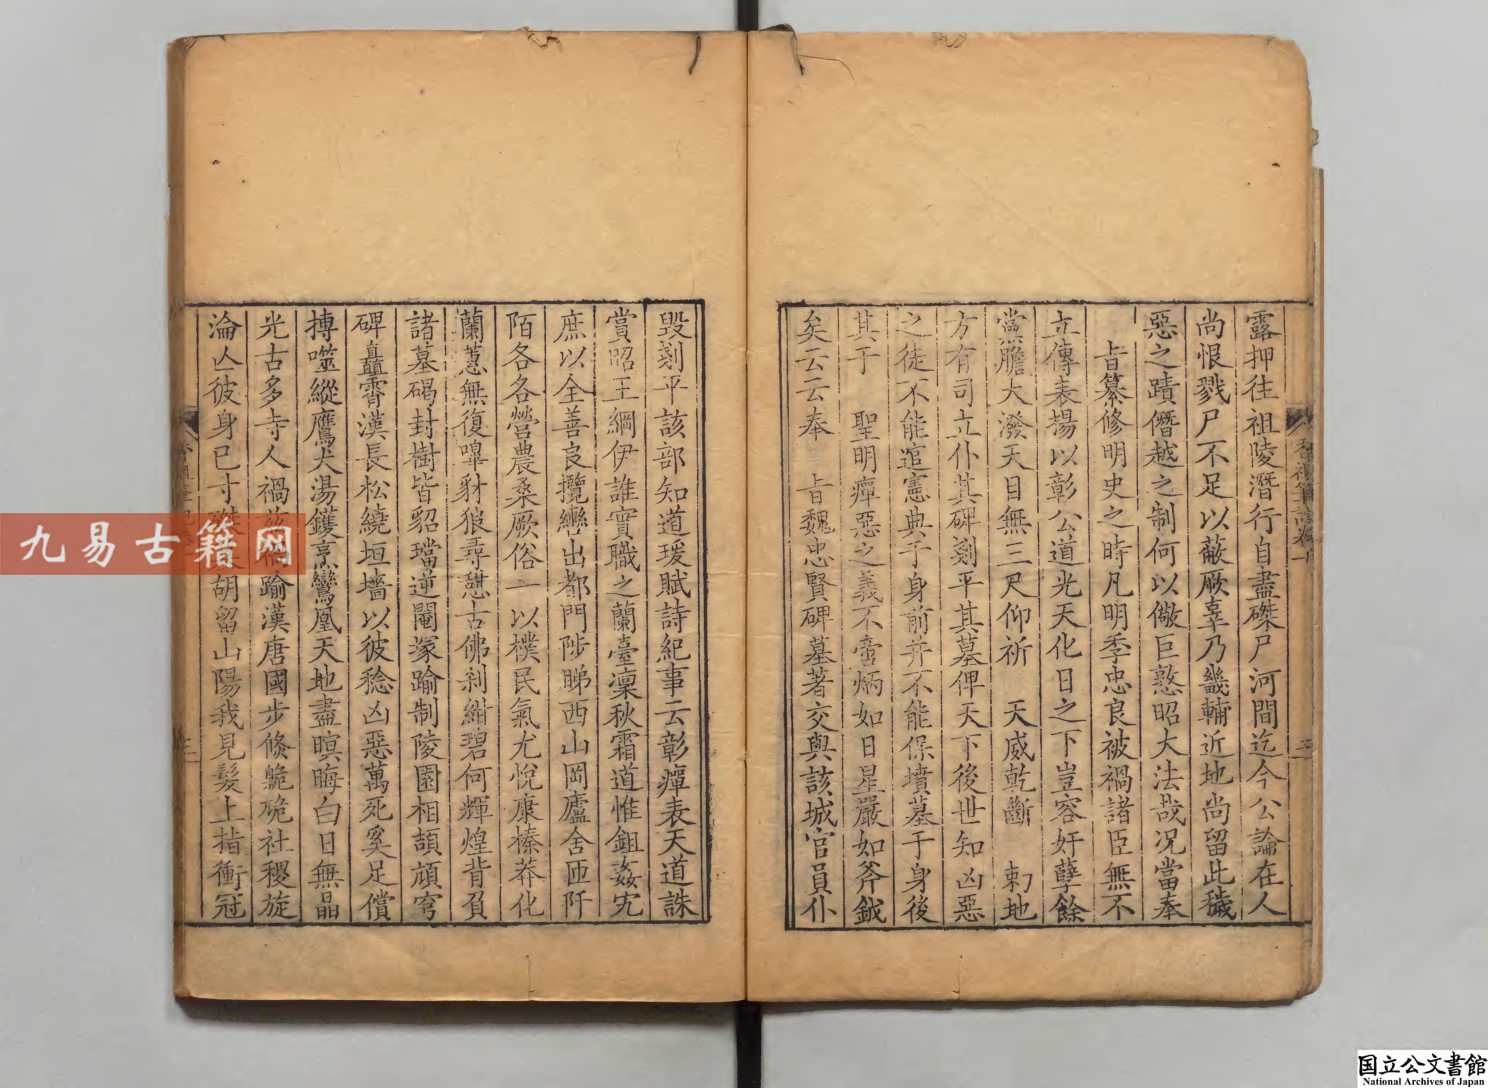 露押往祖陵潛行自盡磔尸河間迄今公論在人
尚恨戮尸不足以蔽厥辜乃畿輔近地尚留此穢
惡之蹟僭越之制何以儆巨憝昭大法哉况當奉
旨纂修明史之時凡明季忠良被禍諸臣無不
立傳表揚以彰公道光天化日之下豈容奸孽餘
黨膽大潑天目無三尺仰祈 天威乾斷 勅地
方有司立仆其碑剗平其墓俾天下後世知凶惡
之徒不能逭憲典于身前并不能保墳墓于身後
其于 聖明癉惡之義不啻炳如日星嚴如斧鉞
矣云云奉 旨魏忠賢碑墓著交與該城官員仆
毀剗平該部知道瑗賦詩紀事云彰癉表天道誅
賞昭王綱伊誰實職之蘭臺凜秋霜道惟鉏姦宄
庶以全善良攬轡出都門陟睇西山岡廬舍匝阡
陌各各營農桑厥俗一以樸民氣尤悅康榛莽化
蘭蕙無復嗥豺狼尋憇古佛刹紺碧何輝煌背負
諸墓碣封樹皆貂璫逆閹塚踰制陵園相頡頏穹
碑矗霄漢長松繞垣墻以彼稔凶惡萬死奚足償
搏噬縱鷹犬湯鑊烹鸞凰天地盡暝晦白日無晶
光古多寺人禍 踰漢唐國步倏䠷硊社稷旋
淪亾彼身已寸磔 胡留山陽我見髮上指衝冠
国立公文書館
National Archives of Japan
九易古籍网